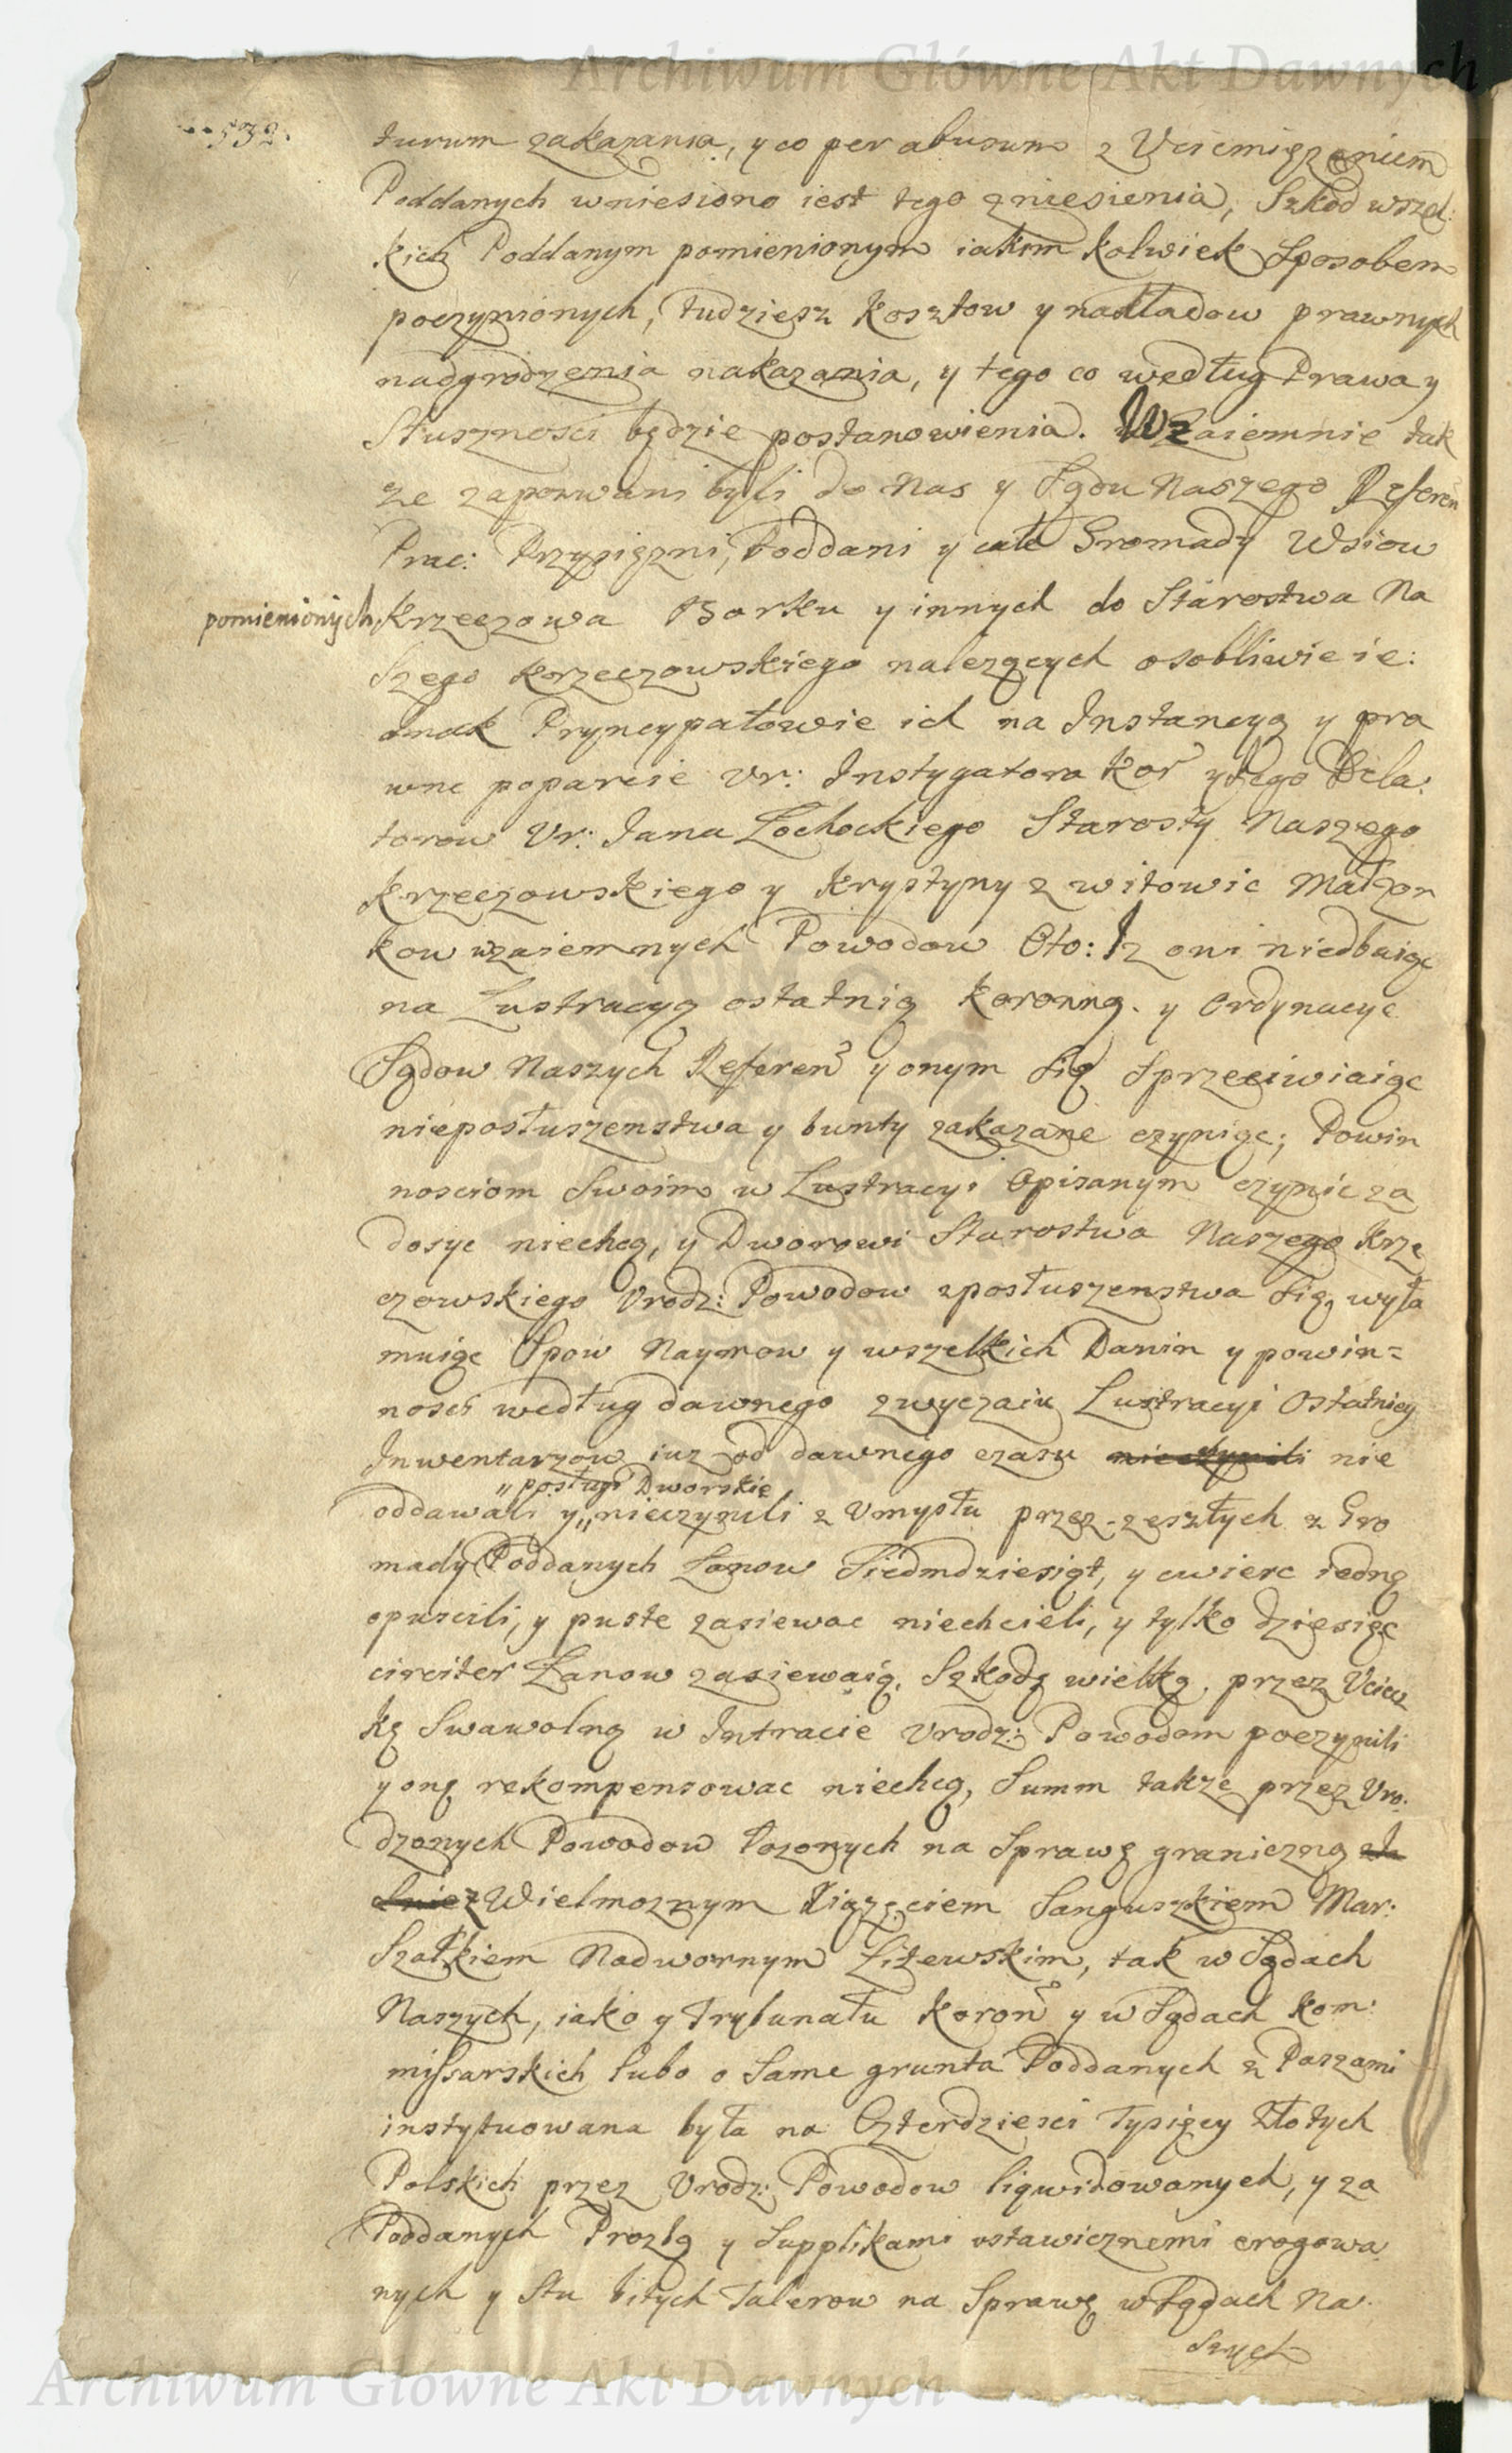 Archiwum Główne Akt Dawnych
532.
turum zakazania, y co per abusum z Vciemięzeniem
Poddanych wniesiono iest tego zniesienia, Szkod wszel:
kich Poddanym pomienionym iakim kolwiek sposobem
poczynionych, tudziesz kosztow y nakładow prawnych
nadgrodzenia nakazania, y tego co według Prawa y
Słusznosci będzie postanowienia. Wzaiemnie tak
ze zapozwani byli do Nas y Sądu Naszego Referen
Prac: Przysięzni, Poddani y całe Gromady Wsiow
pomienionych, Krzeczowa Borku y innych do Starostwa Na
szego Krzeczowskiego nalezących osobliwie ie:
dnak Pryncypałowie ich na Instancyą y pra
wne poparcie Vr: Instygatora Kor y Iego Dela:
torow Vr: Jana Lochockiego Starosty Naszego
Krzeczowskiego y Krystyny z Witowic Małzon
kow wzaiemnych Powodow Oto: Iz oni niedbaiąc
na Lustracyą ostatnią Koronną. y Ordynacye
Sądow Naszych Referen y onym się sprzeciwiaiąc
nieposłuszenstwa y bunty zakazane czyniąc; Powin
nosciom Swoim w Lustracyi Opisanym czynic za
dosyc niechcą, y Dworowi Starostwa Naszego Krze
czowskiego Vrodz: Powodow zposłuszenstwa się wyła
muiąc Spow Naymow y wszelkich Danin y powin=
nosci według dawnego zwyczaiu Lustracyi Ostatniey
Inwentarzow iuz od dawnego czasu nieczynili nie
„posługi Dworskie
oddawali y „nieczynili z Vmysłu przez zeszłych z Gro
mady Poddanych Łanow Siedmdziesiąt, y cwierc iedną
opuscili, y puste zasiewac niechcieli, y tylko dziesięc
circiter Łanow zasiewaią, Szkodę wielką. przez Vciecz
kę Swawolną w Intracie Vrodz: Powodom poczynili
y onę rekompensowac niechcą, Summ takze przez Vro:
dzonych Powodow łozonych na Sprawę graniczną
z Wielmoznym Xiązęciem Sanguszkiem Mar:
szałkiem Nadwornym Litewskim, tak w Sądach
Naszych, iako y Trybunału Koron y w Sądach Kom:
missarskich lubo o same grunta Poddanych z Paszami
instytuowana była na Czterdziesci Tysięcy Złotych
Polskich przez Vrodz: Powodow liqwidowanych, y za
Poddanych Prozbą y Supplikami ustawicznemi erogowa
nych y Stu bitych Talerow na Sprawę w Sądach Na
szych
Archiwum Główne Akt Dawnych